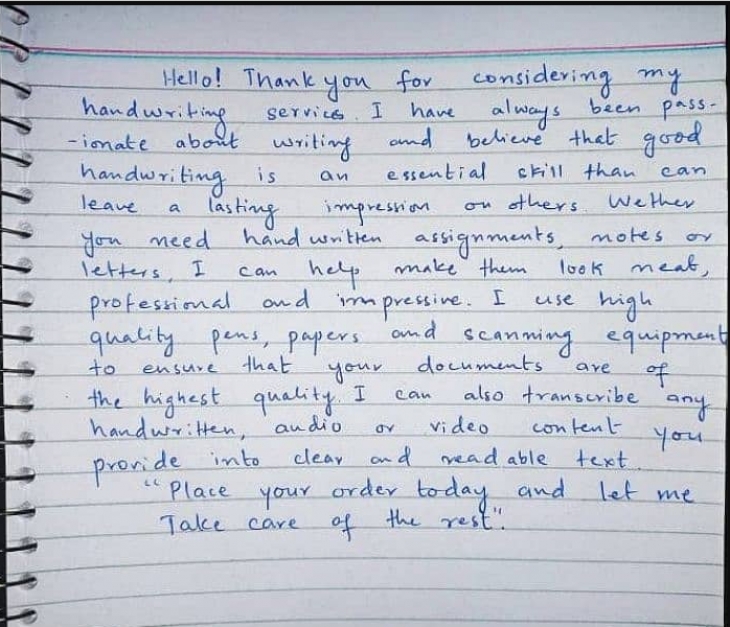 Hello! Thank you for considering my
handwriting services. I have always been pass-
-ionate about writing and believe that good
handwriting is an essential skill than can
leave a lasting impression on others. Wether
you need hand written assignments, notes or
letters, I can help make them look neat,
professional and impressive. I use high
quality pens, papers and scanning equipment
to ensure that your documents are of
the highest quality. I can also transcribe any
handwritten, audio or video content you
provide into clear and readable text.
"Place your order today and let me
Take care of the rest".